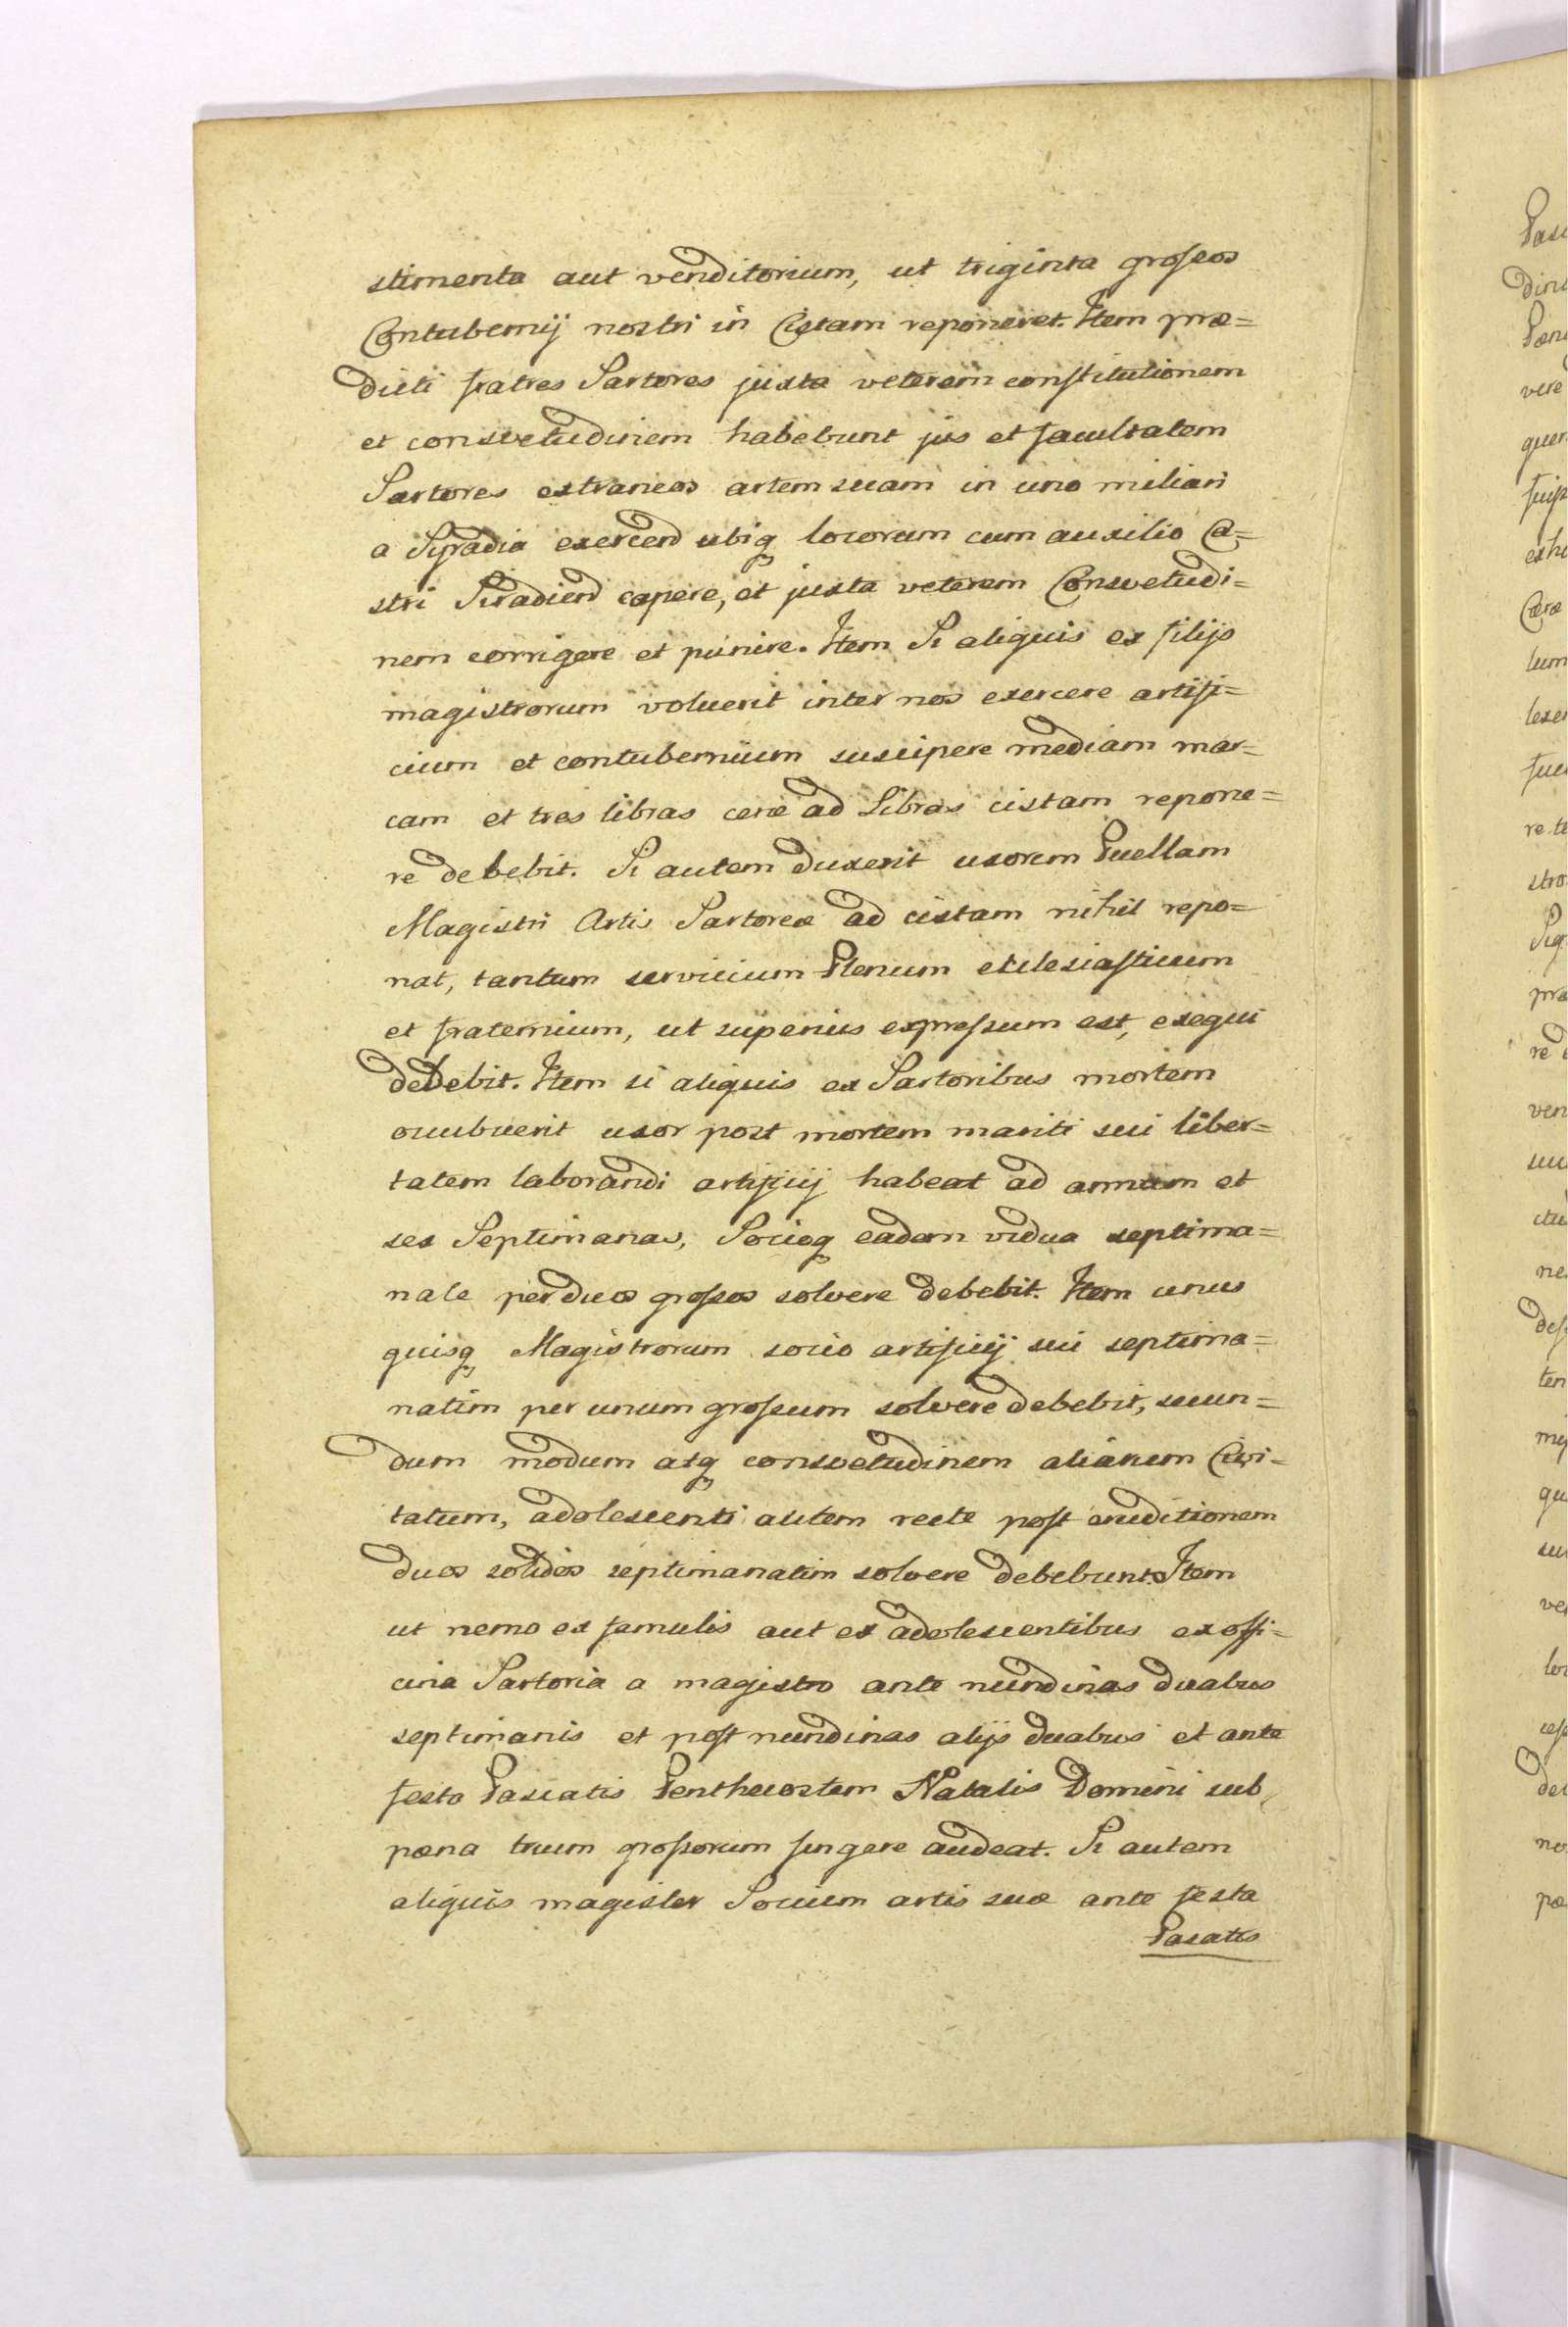 stimenta aut venditorium, ut triginta grossos
Contubernij nostri in Cistam reponeret. Item præ=
dicti fratres Sartores juxta veterem constitutionem
et consvetudinem habebunt jus et facultatem
Sartores extraneos artem suam in uno miliari
a Syradia exercend ubiq locorum cum auxilio Ca=
stri Siradiend capere, et juxta veterem Consvetudi=
nem corrigere et punire. Item Si aliquis ex filijs
magistrorum voluerit inter nos exercere artifi=
cium et contubernium suscipere mediam mar=
cam et tres libras ceræ ad Libras cistam repone=
re debebit. Si autem duxerit uxorem Puellam
Magistri Artis Sartoreæ ad cistam nihil repo=
nat, tantum servicium Plenum ecclesiasticum
et fraternium, ut superius expressum est, exequi
debebit. Item si aliquis ex Sartoribus mortem
ocubuerit uxor post mortem mariti sui liber=
tatem laborandi artificij habeat ad annum et
sex Septimanas, Socioq eadem vidua septima=
nale per duos grossos solvere debebit. Item unus
quisq Magistrorum socio artificij sui septima=
natim per unum grossum solvere debebit, secun=
dum modum atq consvetudinem aliarum Civi=
tatum, adolescenti autem recte post eruditionem
duos solidos septimanatim solvere debebunt. Item
ut nemo ex famulis aut ex adolescentibus ex offi=
cina Sartoria a magistro ante nundinas duabus
septimanis et post nundinas alijs duabus et ante
festa Pascatis Penthecostem Natalis Domini sub
pæna trium grossorum fungere audeat. Si autem
aliquis magister Socium artis suæ ante festa
Pascatis
Pasc
dini
Pæn
vere
quer
ceræ
lum
lexer
re te
stro
præ
ven
ne
ten
qu
no
pæ